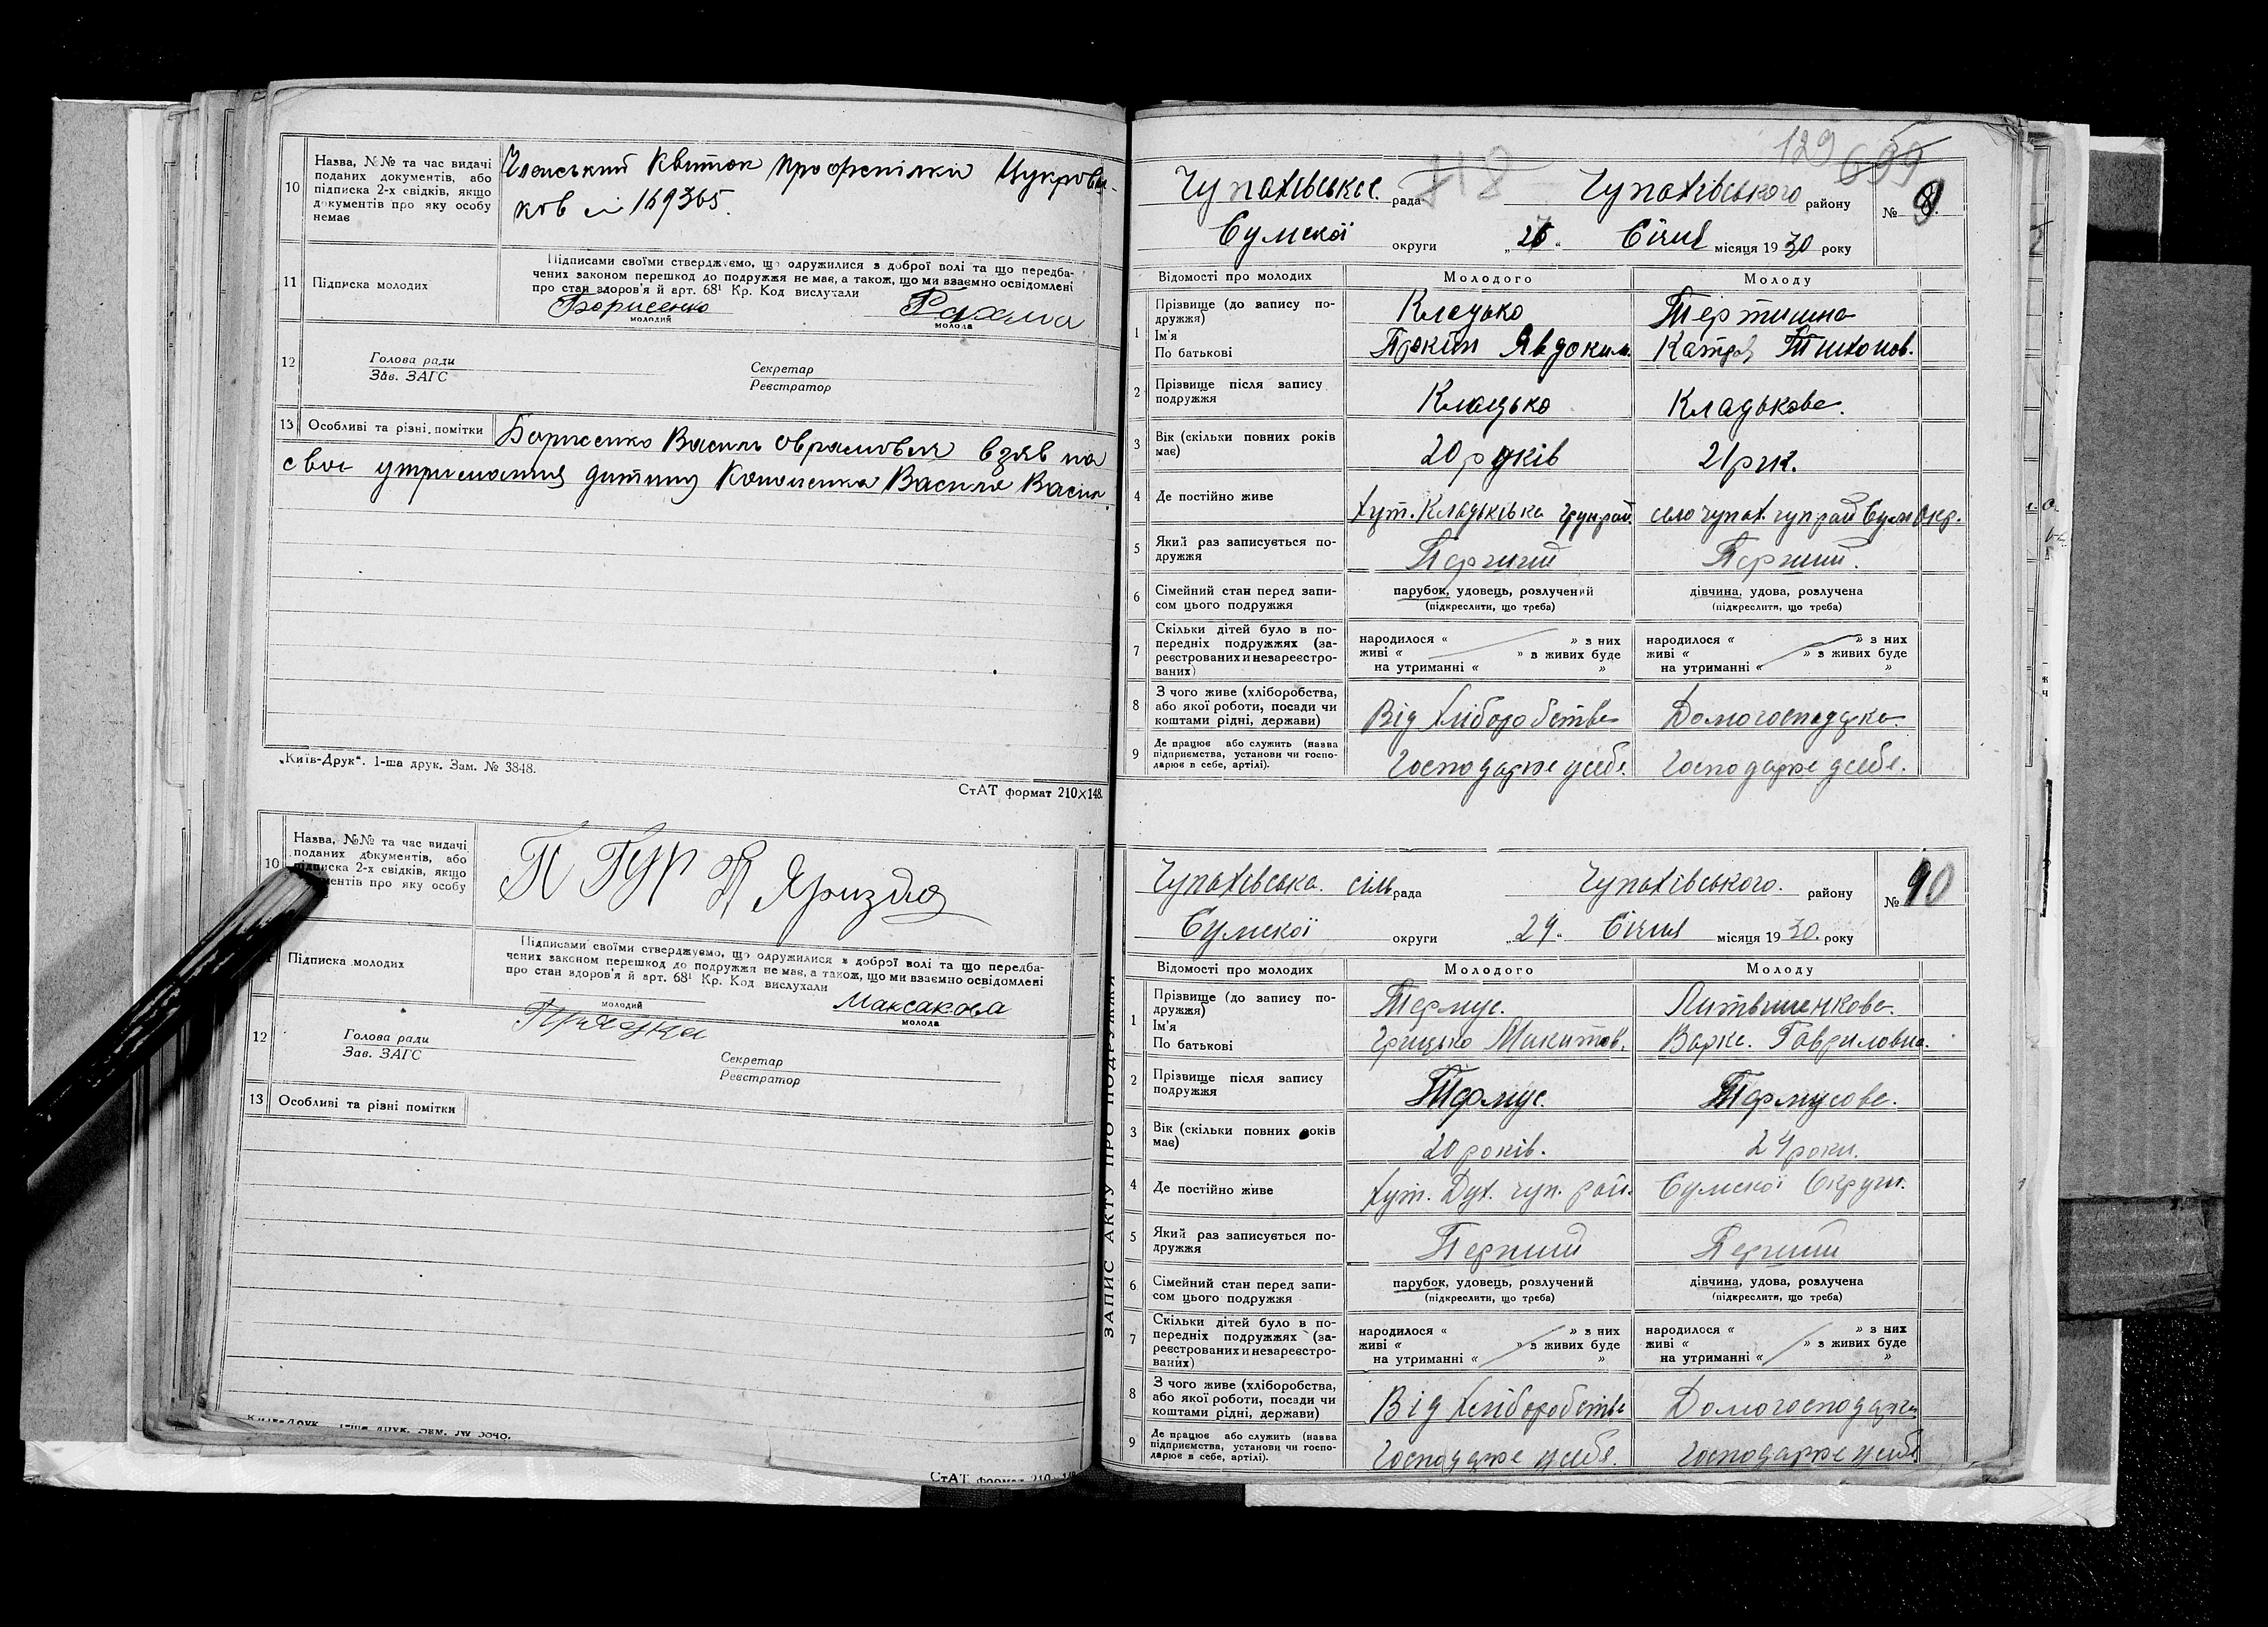 10 Назва, №№ та час видачі поданих документів, або підписка 2-х свідків, якщо документів про яку особу немає
Членський квиток профспілки Цукрови-
ків № 169365.
11 Підписка молодих
Підписами своїми стверджуємо, що одружилися з доброї волі та що передба-
чених законом перешкод до подружжя немає, а також, що ми взаємно освідомлені
про стан здоров'я й арт. 68¹ Кр. Код вислухали
Борисенко
молодий
молода
12 Голова ради
Зав. ЗАГС
Секретар
Реєстратор
13 Особливі та різні помітки
Борисенко Василь Оврамович взяв на
своє утримання дитину Кононенка Василя Васил
„Київ-Друк". 1-ша друк. Зам. № 3848.
СтАТ формат 210×148.
10 Назва, №№ та час видачі
поданих документів, або
підписка 2-х свідків, якщо
про яку особу
11 Підписка молодих
Підписами своїми стверджуємо, що одружилися з доброї волі та що передба-
чених законом перешкод до подружжя немає, а також, що ми взаємно освідомлені
про стан здоров'я й арт. 68¹ Кр. Код вислухали
молодий
Максакова
молода
12 Голова ради
Зав. ЗАГС
Секретар
Реєстратор
13 Особливі та різні помітки
СтАТ формат
129
Чупахівське рада Чупахівського району № 9
Сумської округи Січня місяця 1930 року
Відомості про молодих Молодого Молоду
1 Прізвище (до запису по-
дружжя)
Ім'я
По батькові
Кладько Тертишна
Явдоким. Тихонов.
2 Прізвище після запису
подружжя
Кладько Кладькова.
3 Вік (скільки повних років
має)
20 років 21 рік.
4 Де постійно живе
хут. Кладьківка Грунрай. село чупах. чупрай Сум Окр.
5 Який раз записується по-
дружжя
Перший Перший.
6 Сімейний стан перед запи-
сом цього подружжя
парубок, удовець, розлучений
(підкреслити, що треба)
дівчина, удова, розлучена
(підкреслити, що треба)
7 Скільки дітей було в по-
передніх подружжях (за-
реєстрованих и незареєстро-
ваних)
народилося « » з них
живі « » з живих буде
на утриманні « »
народилося « » з них
живі « » з живих буде
на утриманні « »
8 З чого живе (хліборобства,
або якої роботи, посади чи
коштами рідні, держави)
Від хліборобства Домогосподарка.
9 Де працює або служить (назва
підприємства, установи чи госпо-
дарює в себе, артілі).
Господарює у себе. Господарює у себе.
ЗАПИС АКТУ ПРО ПОДРУЖЖЯ
Чупахівська. сільрада Чупахівського. району № 10
Сумської округи „29" Січня місяця 1930. року
Відомості про молодих Молодого Молоду
1 Прізвище (до запису по-
дружжя)
Ім'я
По батькові
Термус. Литвиненкова.
Грицько Микитов. Варка. Гавриловна.
2 Прізвище після запису
подружжя
Термус. Термусова.
3 Вік (скільки повних років
має)
20 років. 24 роки.
4 Де постійно живе
хут. Дух. чуп. рай. Сумської Округи.
5 Який раз записується по-
дружжя
Перший Перший
6 Сімейний стан перед запи-
сом цього подружжя
парубок, удовець, розлучений
(підкреслити, що треба)
дівчина, удова, розлучена
(підкреслити, що треба)
7 Скільки дітей було в по-
передніх подружжях (за-
реєстрованих и незареєстро-
ваних)
народилося « » з них
живі « » з живих буде
на утриманні « »
народилося « » з них
живі « » з живих буде
на утриманні « »
8 З чого живе (хліборобства,
або якої роботи, посади чи
коштами рідні, держави)
Від хліборобства Домогосподарка
9 Де працює або служить (назва
підприємства, установи чи госпо-
дарює в себе, артілі).
Господарює у себе. Господарює у себе